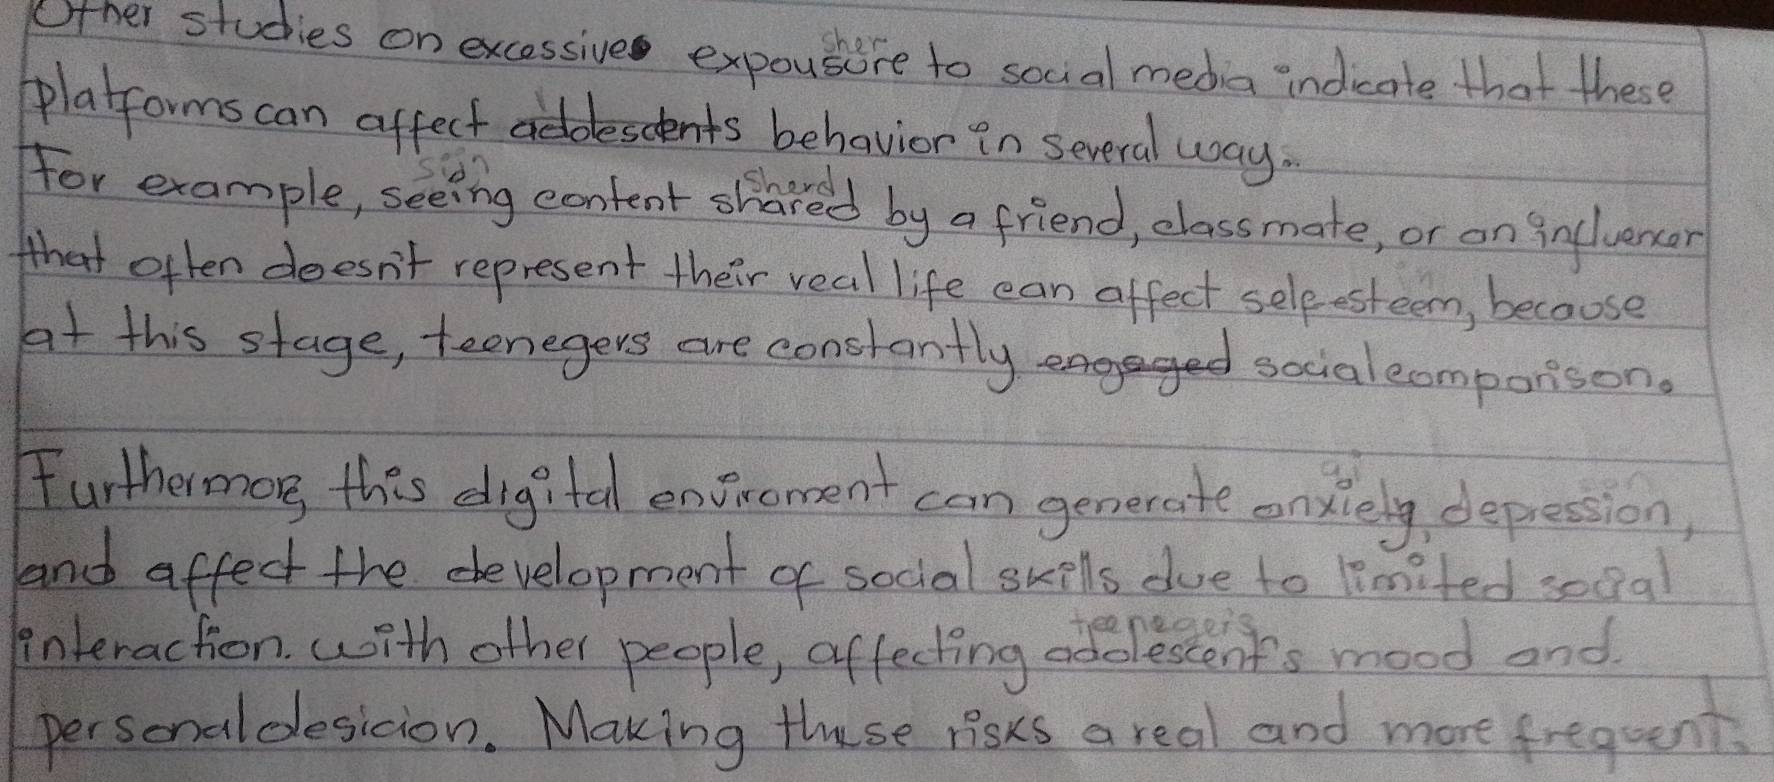 Other studies on excessive expousure to social media indicate that these
platforms can affect adolescents behavior in several way.
For example, seeing content shared by a friend, classmate, or an influencer
that often doesn't represent their real life can affect self esteem, because
at this stage, teenegers are constantly engaged social comparison.
Furthermore, this digital enviroment can generate anxiety, depression,
and affect the development of social skills due to limited social
interaction. with other people, affecting adolescent's mood and.
personal desicion. Making these risks a real and more frequent.